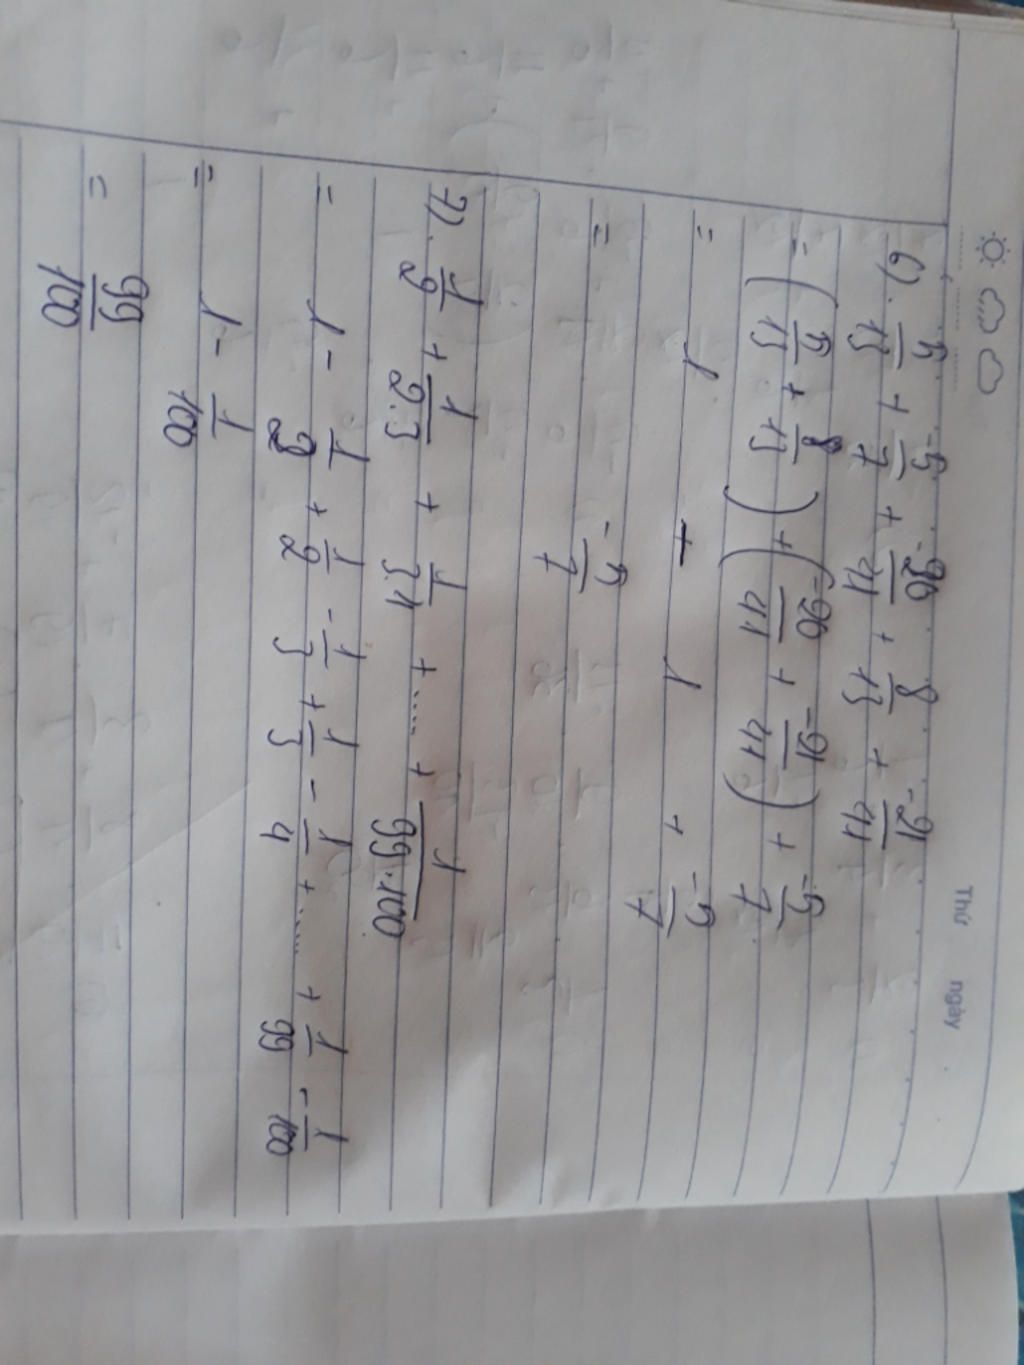 Thứ ngày
6). 5/13 + -5/7 + -20/41 + 8/13 + -21/41
= (5/13 + 8/13) + (-20/41 + -21/41) + -5/7
= 1 + 1 + -5/7
= -5/7
7). 1/2 + 1/2.3 + 1/3.4 + ..... + 1/99.100
= 1 - 1/2 + 1/2 - 1/3 + 1/3 - 1/4 + ..... + 1/99 - 1/100
= 1 - 1/100
= 99/100